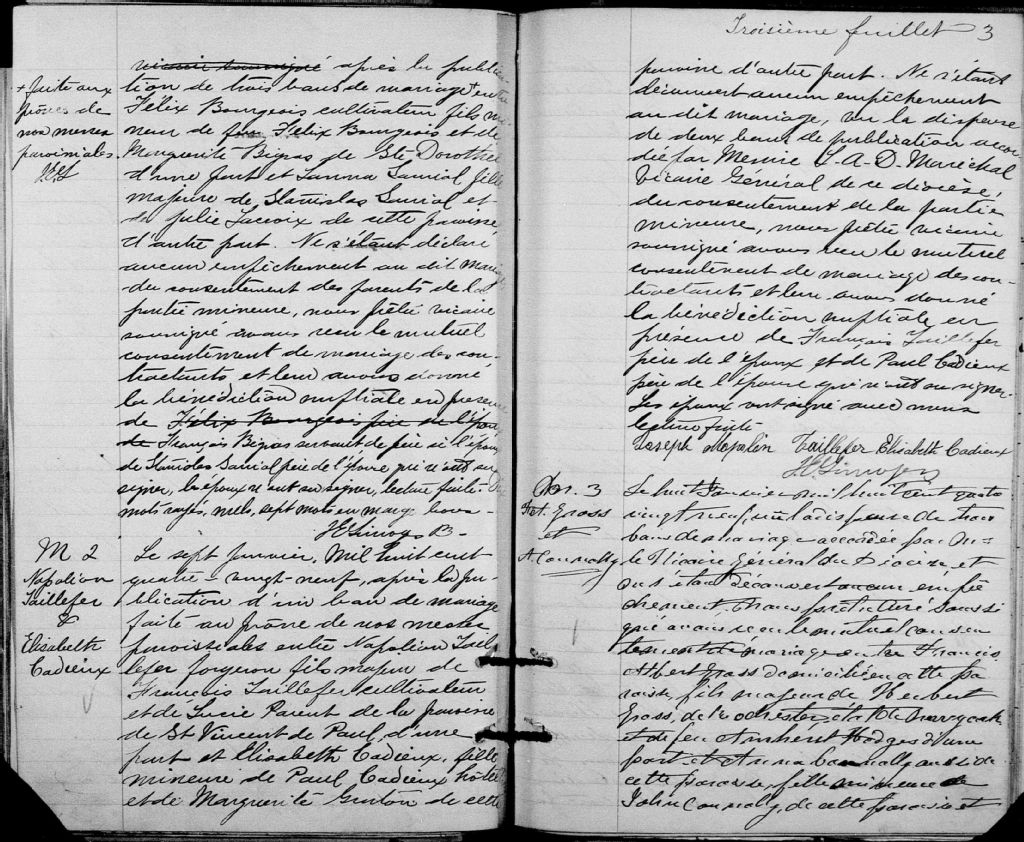 vicaire soussigné après la publica-
tion de trois bans de mariage entre
Félix Bourgeois cultivateur fils mi-
neur de feu Félix Bourgeois et de
Marguerite Bigras de Ste Dorothée
d'une part et Lanial fille
majeure de Stanislas Lanial et
de Julie Lacroix de cette paroisse
d'autre part. Ne s'étant déclaré
aucun empêchement au dit mariage
du consentement des parents de la
partie mineure, nous prêtre vicaire
soussigné avons reçu le mutuel
consentement de mariage des con-
tractants et leur avons donné
la bénédiction nuptiale en présence
de Félix Bourgeois père de l'époux
de François Bigras servant de père à l'époux
de Stanislas Lanial père de l'épouse qui n'ont su
signer, les époux ne ont su signer, lecture faite.
mots rayés, nuls, sept mots en marge bons -
+ faite aux
prônes de
nos messes
paroissiales.
M 2
Napoléon
Taillefer
&
Elisabeth
Cadieux
Le sept Janvier, Mil huit cent
quatre-vingt-neuf, après la pu-
blication d'un ban de mariage
faite au prône de nos messes
paroissiales entre Napoléon Tail-
lefer forgeron fils majeur de
François Taillefer cultivateur
et de Lucie Parent de la paroisse
de St Vincent de Paul, d'une
part et Elisabeth Cadieux, fille
mineure de Paul Cadieux
et de Marguerite de cette
Troisième feuillet 3
paroisse d'autre part. Ne s'étant
découvert aucun empêchement
au dit mariage, vu la dispense
de deux bans de publication accor-
dée par Messire L. A. D. Maréchal
Vicaire Général de ce diocèse,
du consentement de la partie
mineure, nous prêtre vicaire
soussigné avons reçu le mutuel
consentement de mariage des con-
tractants et leur avons donné
la bénédiction nuptiale en
présence de François Taillefer
père de l'époux et de Paul Cadieux
père de l'épouse qui n'ont su signer.
Les époux ont signé avec nous
lecture faite
Joseph Napoléon Taillefer Elisabeth Cadieux
M. 3
F. A. Gross
et
A. Connolly
Le huit Janvier mil huit cent quatre
vingt neuf, vu la dispense de trois
bans de mariage accordée par
le Vicaire Général du Diocèse, et
ne s'étant découvert aucun empê
chement, nous prêtre soussi
gné avons reçu le mutuel consen
tement de mariage entre Francis
Albert Gross domicilié en cette pa
roisse, fils majeur de Herbert
Gross, de Rochester, état de New-York
et de feu Hodges d'une
part et Anna Connolly, aussi de
cette paroisse, fille mineure de
John Connolly, de cette paroisse et